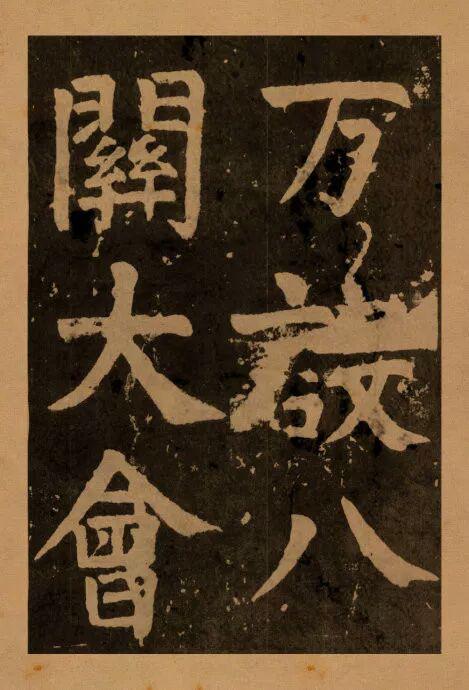 万設八
關大會